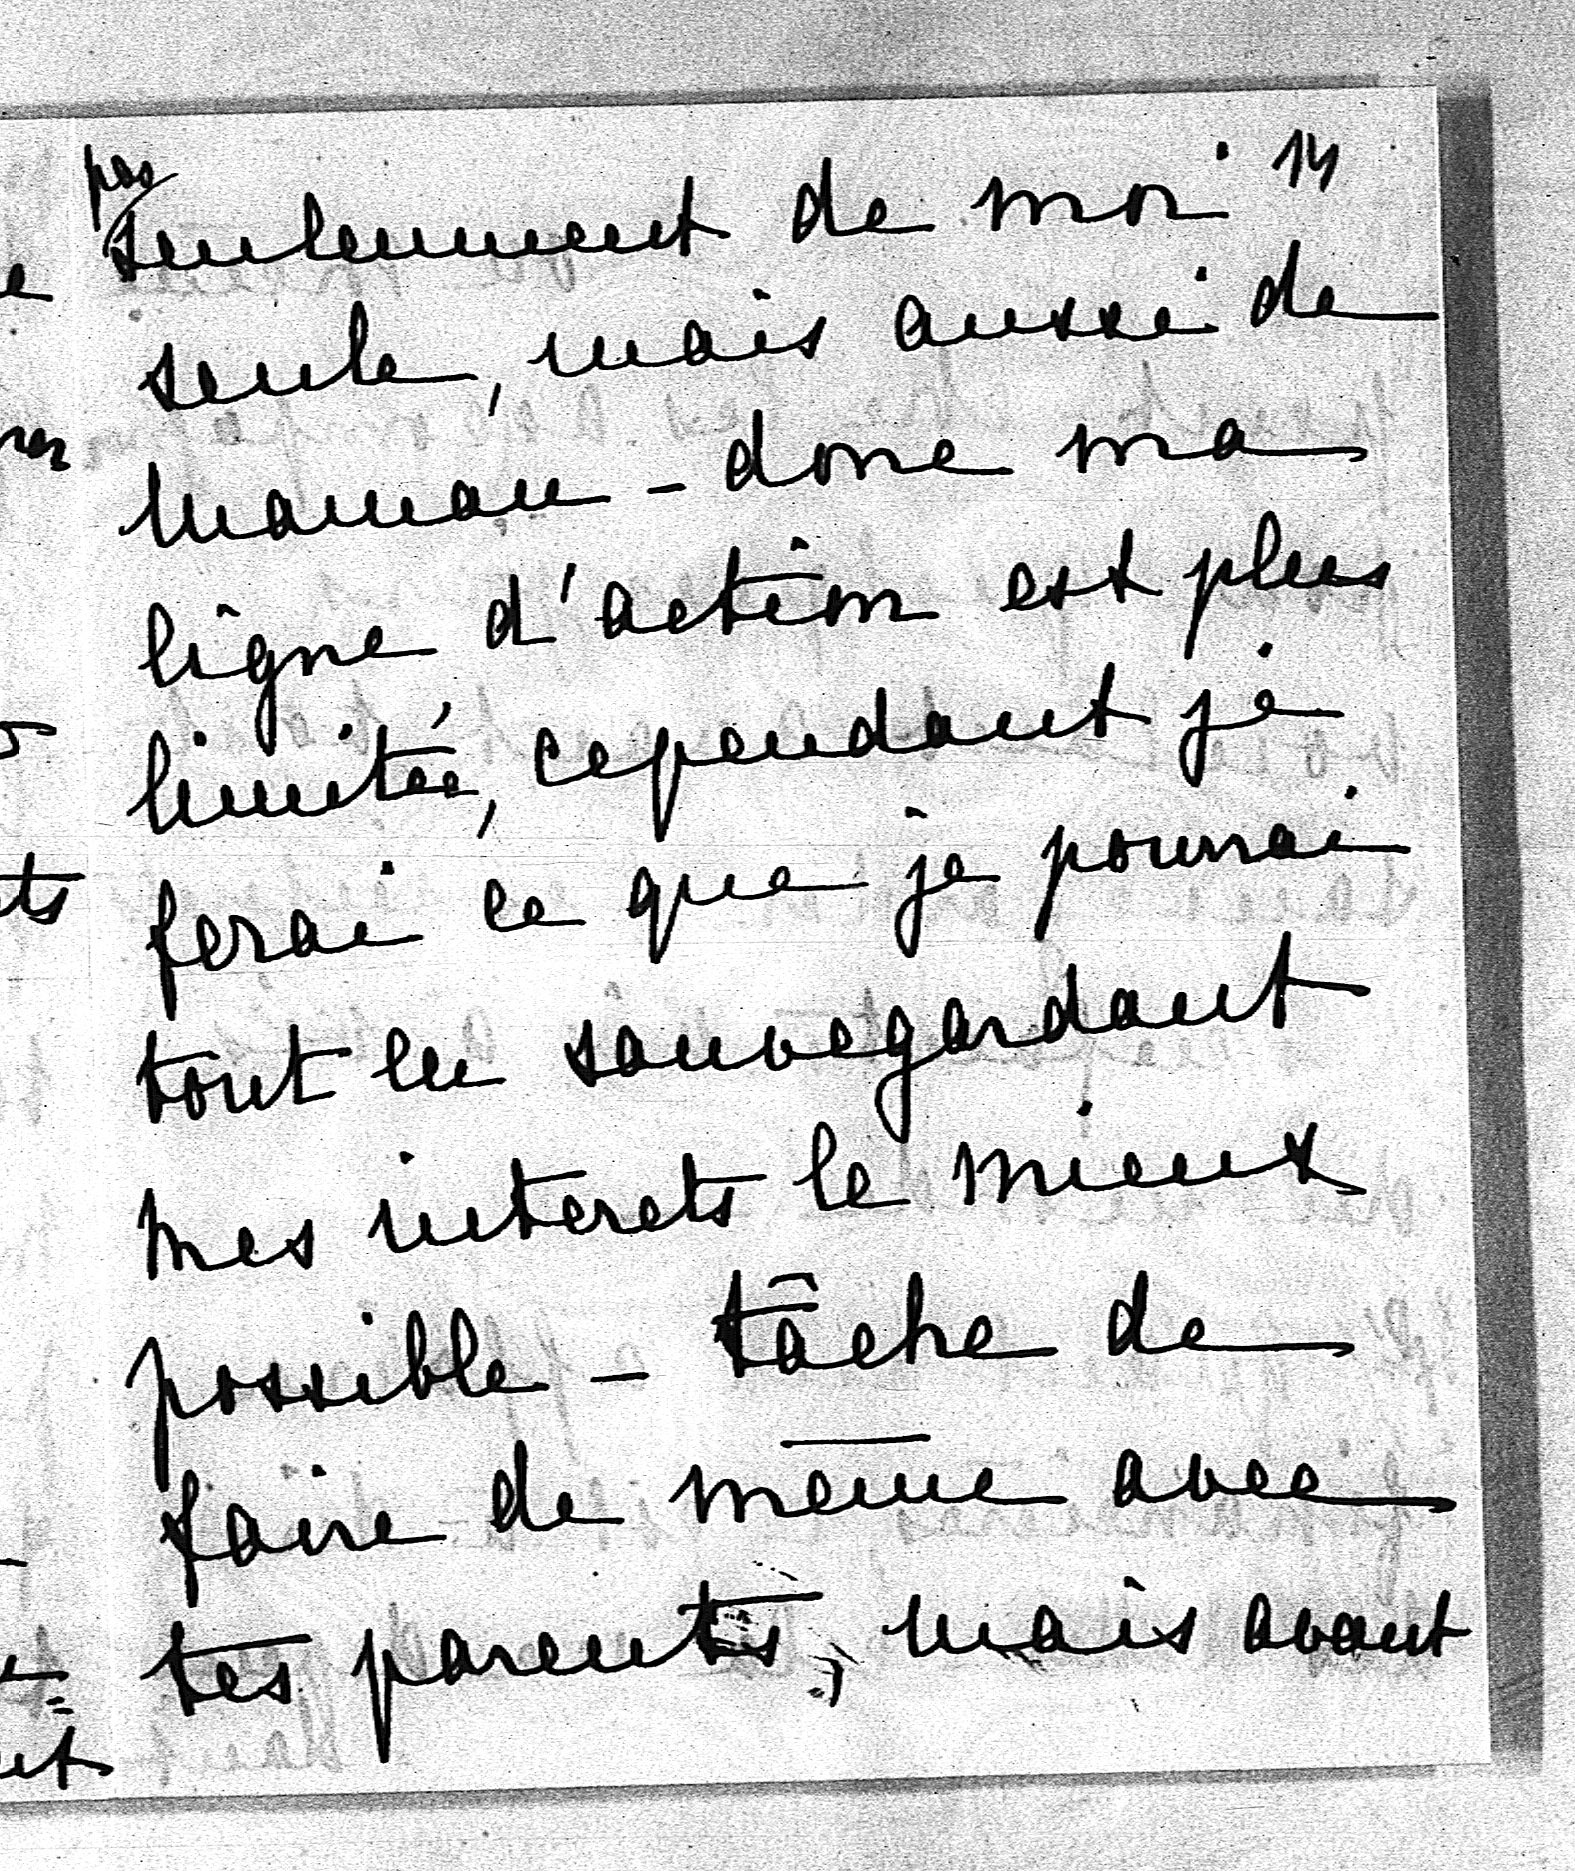 14
pas
seulement de moi
seule, mais aussi de
maman - donc ma
ligne d'action est plus
limitée, cependant je
ferai ce que je pourrai
tout en sauvegardant
mes interets le mieux
possible - tâche de
faire de même avec
tes parents, mais avant